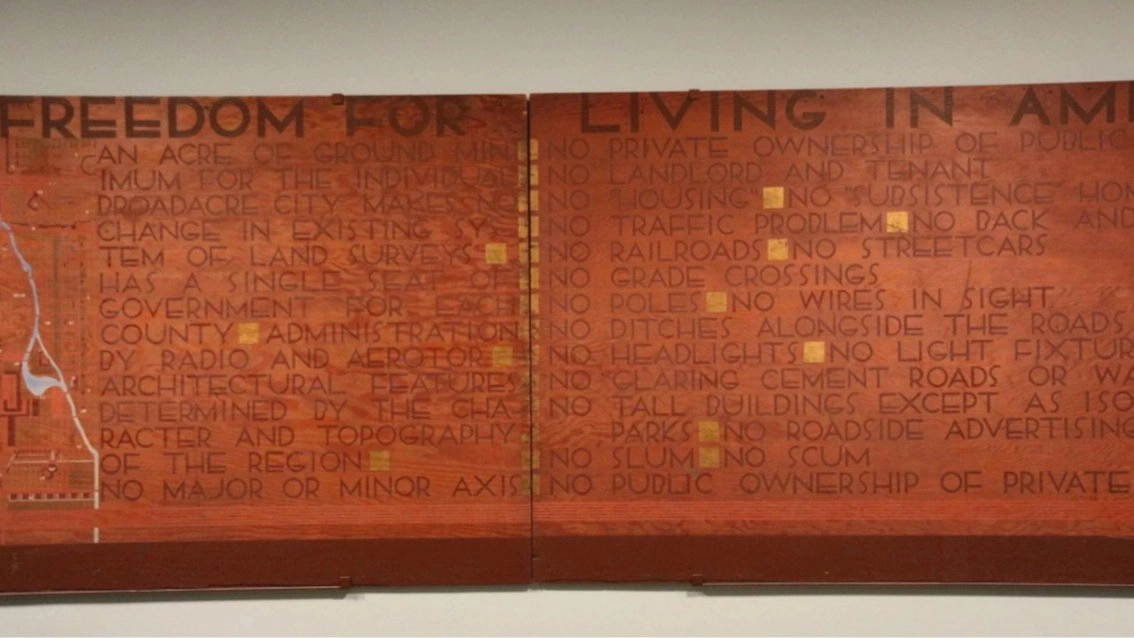 FREEDOM FOR LIVING IN AMI
AN ACRE OF GROUND MIN
IMUM FOR THE INDIVIDUAL
BROADACRE CITY MAKES NO
CHANGE IN EXISTING SYS
TEM OF LAND SURVEYS
HAS A SINGLE SEAT OF
GOVERNMENT FOR EACH
COUNTY ADMINISTRATION
BY RADIO AND AEROTOR
ARCHITECTURAL FEATURES
DETERMINED BY THE CHA
RACTER AND TOPOGRAPHY
OF THE REGION
NO MAJOR OR MINOR AXIS
NO PRIVATE OWNERSHIP OF PUBLIC
NO LANDLORD AND TENANT
NO "HOUSING" NO "SUBSISTENCE" HOM
NO TRAFFIC PROBLEM NO BACK AND
NO RAILROADS NO STREETCARS
NO GRADE CROSSINGS
NO POLES NO WIRES IN SIGHT
NO DITCHES ALONGSIDE THE ROADS
NO HEADLIGHTS NO LIGHT FIXTUR
NO GLARING CEMENT ROADS OR WA
NO TALL BUILDINGS EXCEPT AS ISO
PARKS NO ROADSIDE ADVERTISING
NO SLUM NO SCUM
NO PUBLIC OWNERSHIP OF PRIVATE